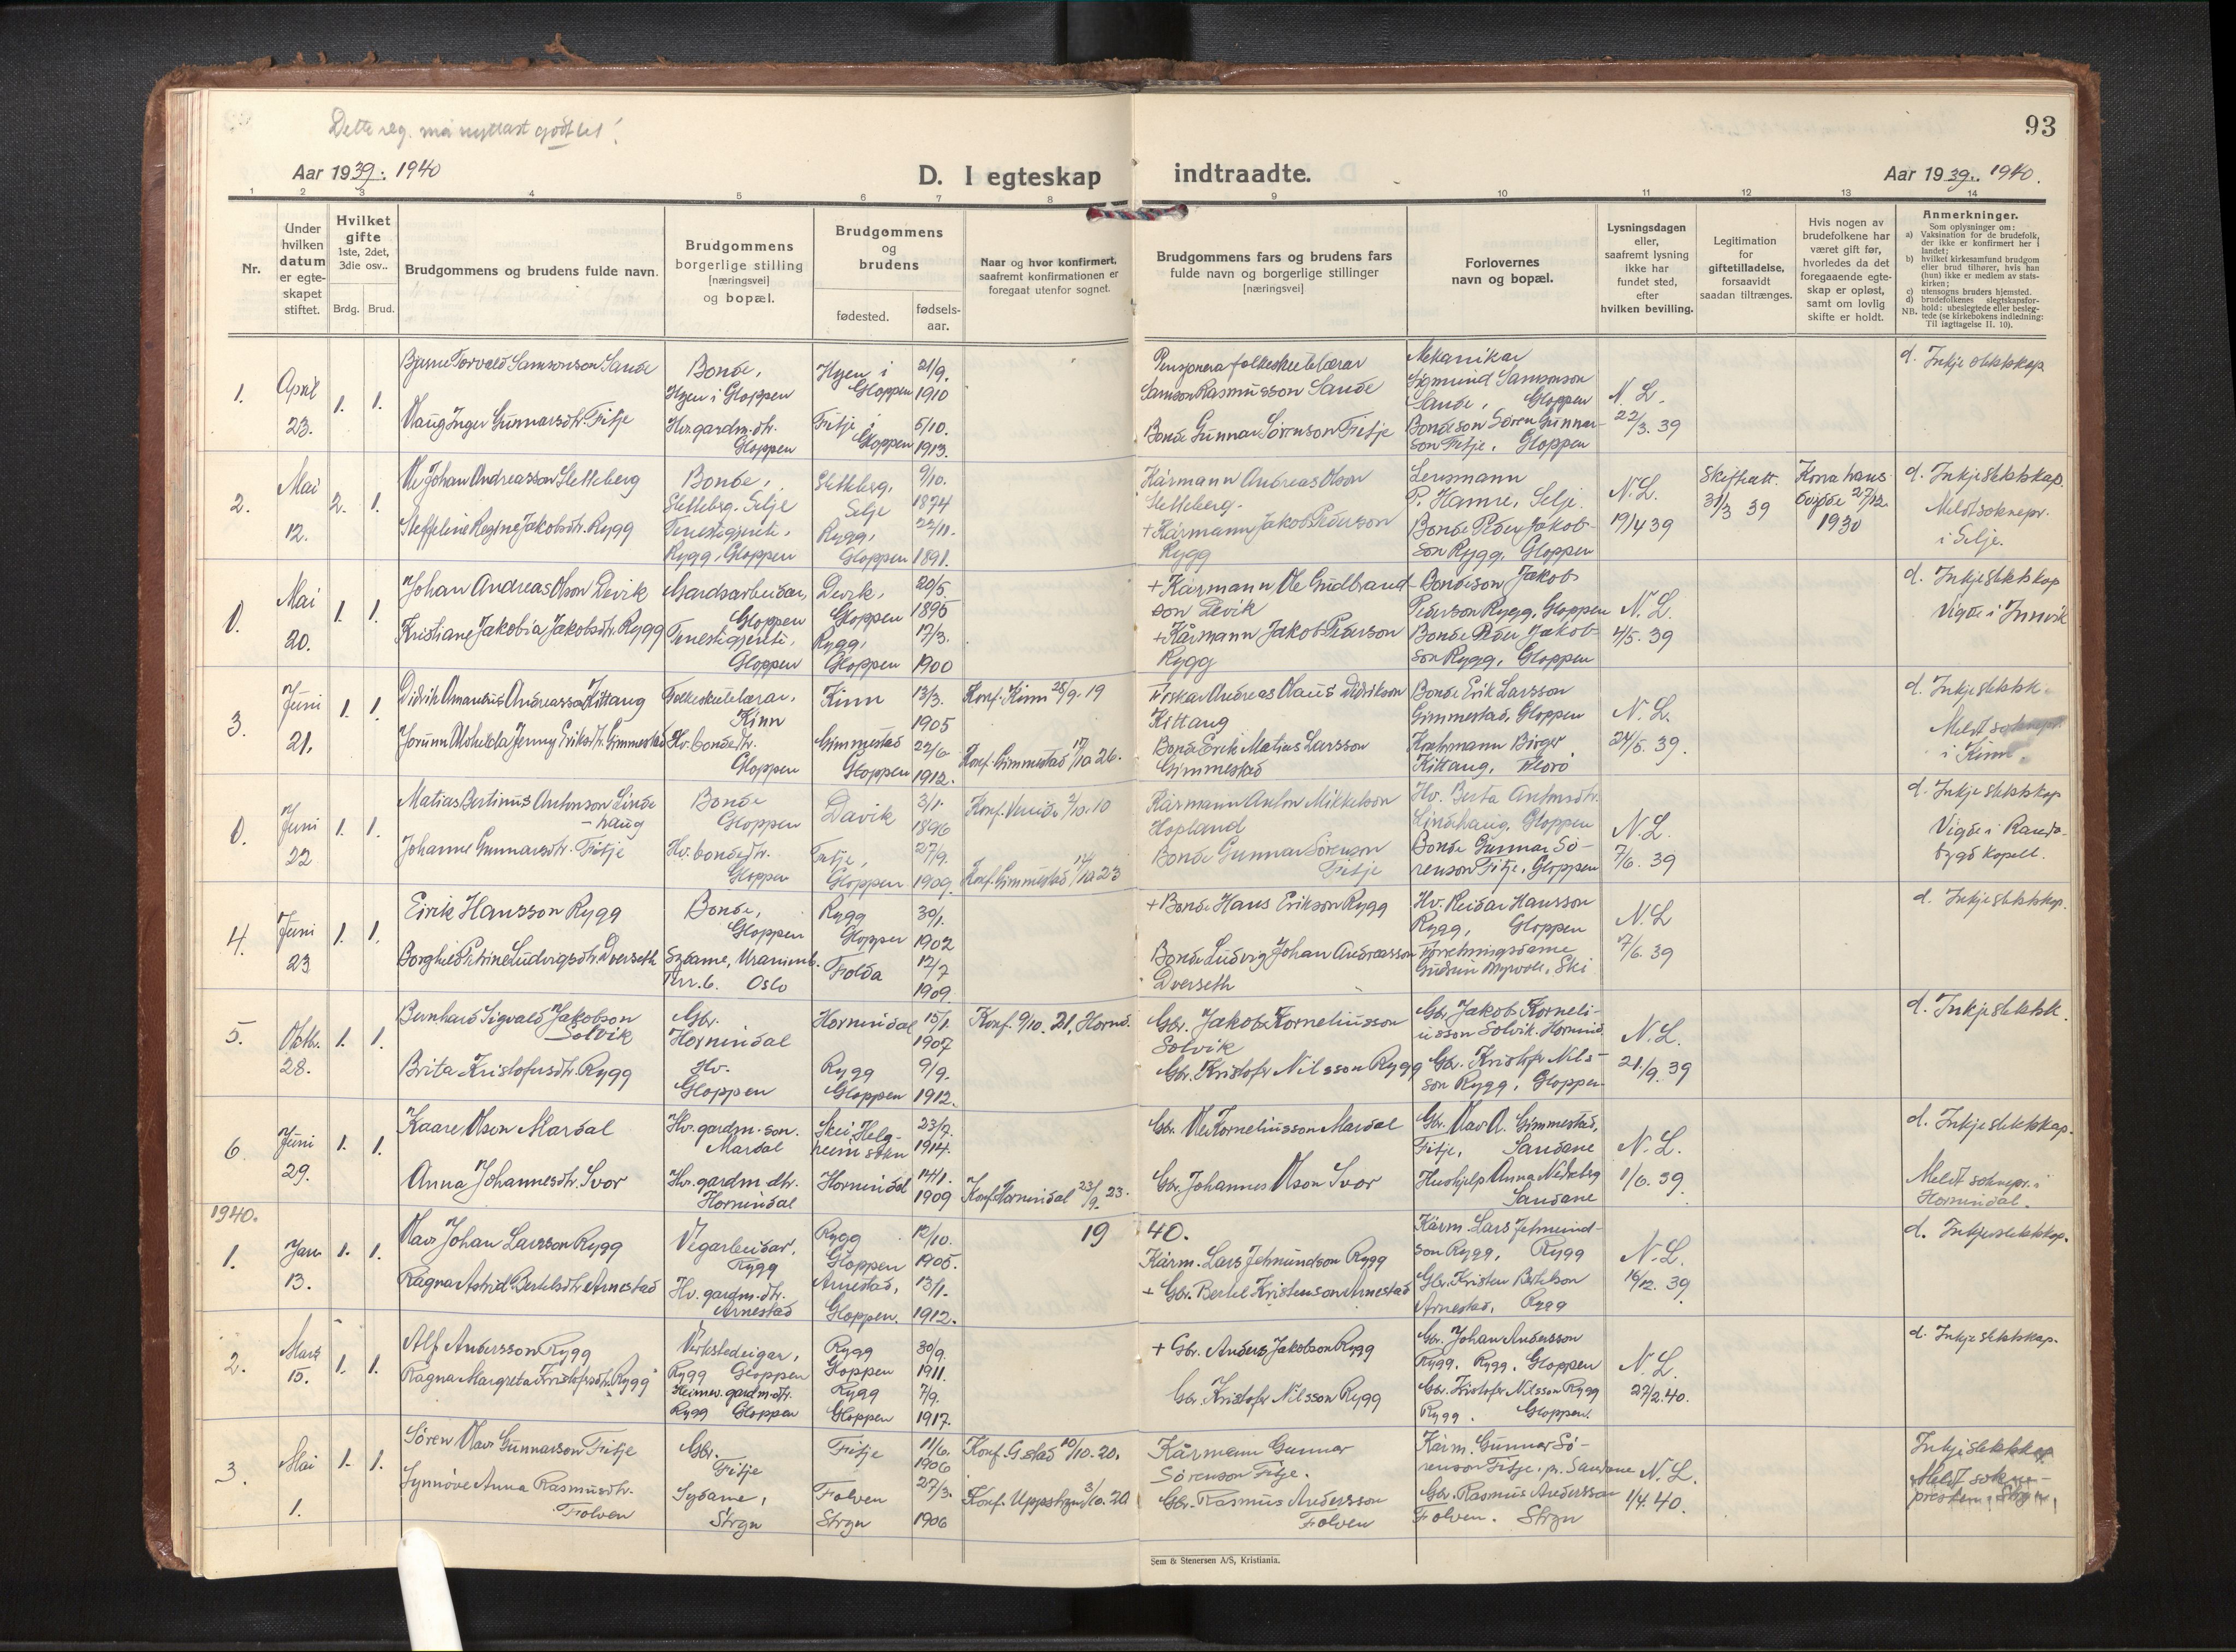 93
Dette reg. må nyttast godt ut!
Aar 1939. 1940
D. I egteskap indtraadte.
Aar 1939. 1940.
1 2 3 4 5 6 7 8 9 10 11 12 13 14
Nr.
Under hvilken datum er egteskapet stiftet.
Hvilket gifte 1ste, 2det, 3die osv..
Brdg. Brud.
Brudgommens og brudens fulde navn.
Brudgommens borgerlige stilling [næringsvei] og bopæl.
Brudgommens og brudens
fødested. fødsels-aar.
Naar og hvor konfirmert, saafremt konfirmationen er foregaat utenfor sognet.
Brudgommens fars og brudens fars fulde navn og borgerlige stillinger [næringsvei]
Forlovernes navn og bopæl.
Lysningsdagen eller, saafremt lysning ikke har fundet sted, efter hvilken bevilling.
Legitimation for giftetilladelse, forsaavidt saadan tiltrænges.
Hvis nogen av brudefolkene har været gift før, hvorledes da det foregaaende egteskap er opløst, samt om lovlig skifte er holdt.
Anmerkninger.
Som oplysning om:
a) Vaksination for de brudefolk, der ikke er konfirmert her i landet;
b) hvilket kirkesamfund brudgom eller brud tilhører, hvis han (hun) ikke er medlem av statskirken;
c) utensogns bruders hjemsted.
d) brudefolkenes slegtskapsforhold: ubeslegtede eller beslegtede (se kirkebokens indledning:
NB. Til Iagttagelse II. 10).
1. April 23. 1. 1.
Bjarne Torvald Samsonson Sande
Bonde, Hyen i Gloppen
Hyen i Gloppen 21/9. 1910
Pensjonera folkeskulelærar Samson Rasmusson Sande
Mekanikar Sigmund Samsonson Sande, Gloppen
N. L. 22/3. 39
d. Inkje slektskap
Inger Gunnarsdtr. Fitje
Hv. gardm. dtr. Gloppen
Fitje i Gloppen 5/10. 1913.
Bonde Gunnar Sørenson Fitje
Bondeson Søren Gunnarson Fitje, Gloppen
2. Mai 12. 2. 1.
Ole Johan Andreasson Sletteberg
Bonde, Sletteberg, Selje
Sletteberg, Selje 9/10. 1874
Kårmann Andreas Olson Sletteberg.
Lensmann P. Hamre, Selje.
N. L. 19/4 39
Skifteatt. 31/3 39
Kona hans døydde 27/12. 1930
d. Inkje slektskap. Meldt soknepr. i Selje.
Steffeline Regine Jakobsdtr. Rygg
Tenestgjente, Rygg, Gloppen
Rygg, Gloppen 22/11. 1891.
+ Kårmann Jakob Pederson Rygg
Bonde Peder Jakobson Rygg, Gloppen
0. Mai 20. 1. 1.
Johan Andreas Olson Devik
Gardsarbeidar, Gloppen
Devik, Gloppen 20/5. 1895
+ Kårmann Ole Gudbrandson Devik
Bondeson Jakob Pederson Rygg, Gloppen
N. L. 4/5. 39
d. Inkje slektskap Vigde i Innvik
Kristiane Jakobia Jakobsdtr. Rygg
Tenestgjente, Gloppen
Rygg, Gloppen 17/3. 1900
+ Kårmann Jakob Pederson Rygg
Bonde Peder Jakobson Rygg, Gloppen
3. Juni 21. 1. 1.
Didrik Amandus Andreasson Kittang
Folkeskulelærar, Kinn
Kinn 13/3. 1905
Konf. Kinn 28/9. 19
Fiskar Andreas Olaus Didrikson Kittang
Bonde Erik Larsson Gimmestad, Gloppen
N. L. 24/5. 39.
d. Inkje slektsk. Meldt soknepr. i Kinn.
Jorunn Jenny Eriksdtr. Gimmestad
Hv. bondedtr. Gloppen
Gimmestad Gloppen 22/6 1912.
Konf. Gimmestad 17/10 26.
Bonde Erik Matias Larsson Gimmestad
Birger Kittang, Florø
0. Juni 22 1. 1.
Matias Bertinus Antonson Lindehaug
Bonde Gloppen
Davik 3/1. 1896
Kårmann Anton Mikkelson Hopland
Hv. Berta Antonsdtr. Lindehaug, Gloppen
N. L. 7/6. 39
d. Inkje slektskap Vigde i Randabygd kapell.
Johanne Gunnarsdtr. Fitje
Hv. bondedtr. Gloppen
Fitje, Gloppen 27/9. 1909.
Konf. Gimmestad 14/10 23
Bonde Gunnar Sørenson Fitje
Bonde Gunnar Sørenson Fitje, Gloppen
4. Juni 23 1. 1.
Eirik Hansson Rygg
Bonde, Gloppen
Rygg Gloppen 30/1. 1902
+ Bonde Hans Erikson Rygg
Hv. Reidar Hansson Rygg, Gloppen
N. L 7/6. 39
d. Inkje slektskap.
Borghild Petrine Ludvigsdtr. Dverseth
Sydame, Uranienb. Terr. 6. Oslo
Folda 12/7 1909.
Bonde Ludvig Johan Andreasson Dverseth
Forretningsdame Gudrun Myrvold, Ski
5. Oktbr. 28. 1. 1.
Bernhard Sigvald Jakobson Solvik
Gbr. Hornindal
Hornindal 15/1. 1907
Konf. 9/10. 21, Hornd.
Gbr. Jakob Korneliusson Solvik
Gbr. Jakob Korneliusson Solvik, Hornind.
N. L. 21/9. 39
d. Inkje slektsk.
Brita Kristofersdtr. Rygg
Hv. Gloppen
Rygg Gloppen 9/9. 1912.
Gbr. Kristofer Nilsson Rygg
Gbr. Kristofer Nilsson Rygg, Gloppen
6. Juni 29. 1. 1.
Kaare Olson Mardal
Hv. gardm. son. Mardal
Skei, Helgheim sokn 23/7. 1914.
Gbr. Ole Korneliusson Mardal
Gbr. Olav A. Gimmestad, Fitje, Sandane
N. L. 1/6. 39
d. Inkje slektskap. Meldt soknepr. i Hornindal.
Anna Johannesdtr. Svor
Hv. gardm dtr. Hornindal
Hornindal 14/1. 1909
Konf. Hornindal 23/9. 23.
Gbr. Johannes Olson Svor
Hushjelp Anna Sandane
1940. 19 40.
1. Jan 13. 1. 1.
Olav Johan Larsson Rygg
Vegarbeidar, Rygg
Rygg Gloppen 12/10. 1905.
Kårm. Lars Jehmundson Rygg
Kårm. Lars Jehmundson Rygg, Rygg
N. L. 16/12. 39
d. Inkje slektskap.
Ragna Astrid Bertelsdtr. Arnestad
Hv. gardm. dtr. Arnestad
Arnestad, Gloppen. 13/1. 1912.
+ Gbr. Bertel Kristenson Arnestad
Gbr. Kristen Bertelson Arnestad, Rygg
2. Mars 15. 1. 1.
Alf Andersson Rygg
Verkstedeigar, Rygg Gloppen
Rygg Gloppen 30/9. 1911.
+ Gbr. Anders Jakobson Rygg
Gbr. Johan Andersson Rygg, Rygg, Gloppen
N. L. 27/2. 40.
d. Inkje slektskap.
Ragna Margreta Kristofersdtr. Rygg
Heimev. gardm. dtr. Rygg Gloppen
Rygg Gloppen 7/9. 1917.
Gbr. Kristofer Nilsson Rygg
Gbr. Kristofer Nilsson Rygg Rygg. Gloppen.
3. Mai 1. 1. 1.
Søren Olav Gunnarson Fitje
Gbr. Fitje
Fitje 11/6. 1906
Konf. G.stad 10/10. 20.
Kårmann Gunnar Sørenson Fitje.
Kårm. Gunnar Sørenson Fitje, pr. Sandane
N. L. 1/4. 40.
Inkje slektskap Meldt soknepresten i Stryn.
Synnøve Anna Rasmusdtr. Folven
Sydame, Stryn
Folven Stryn 27/3. 1906
Konf. Uppstryn 3/10. 20
Gbr. Rasmus Andersson Folven
Gbr. Rasmus Andersson Folven. Stryn
Sem & Stenersen A/S, Kristiania.